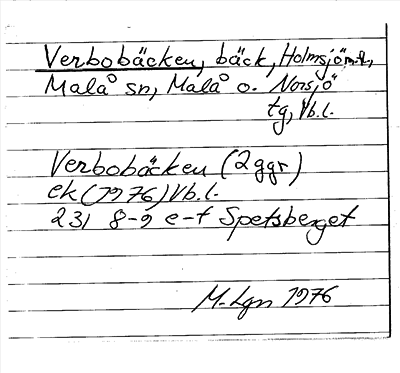 Verbobäcken, bäck, Holmsjöm.fl.,
Malå sn, Malå o. Norsjö
tg, Vb.l.
Verbobäcken (2ggr)
ek (1976) Vb.l.
231 8-9 e-f Spetsberget
M-Lgn 1976